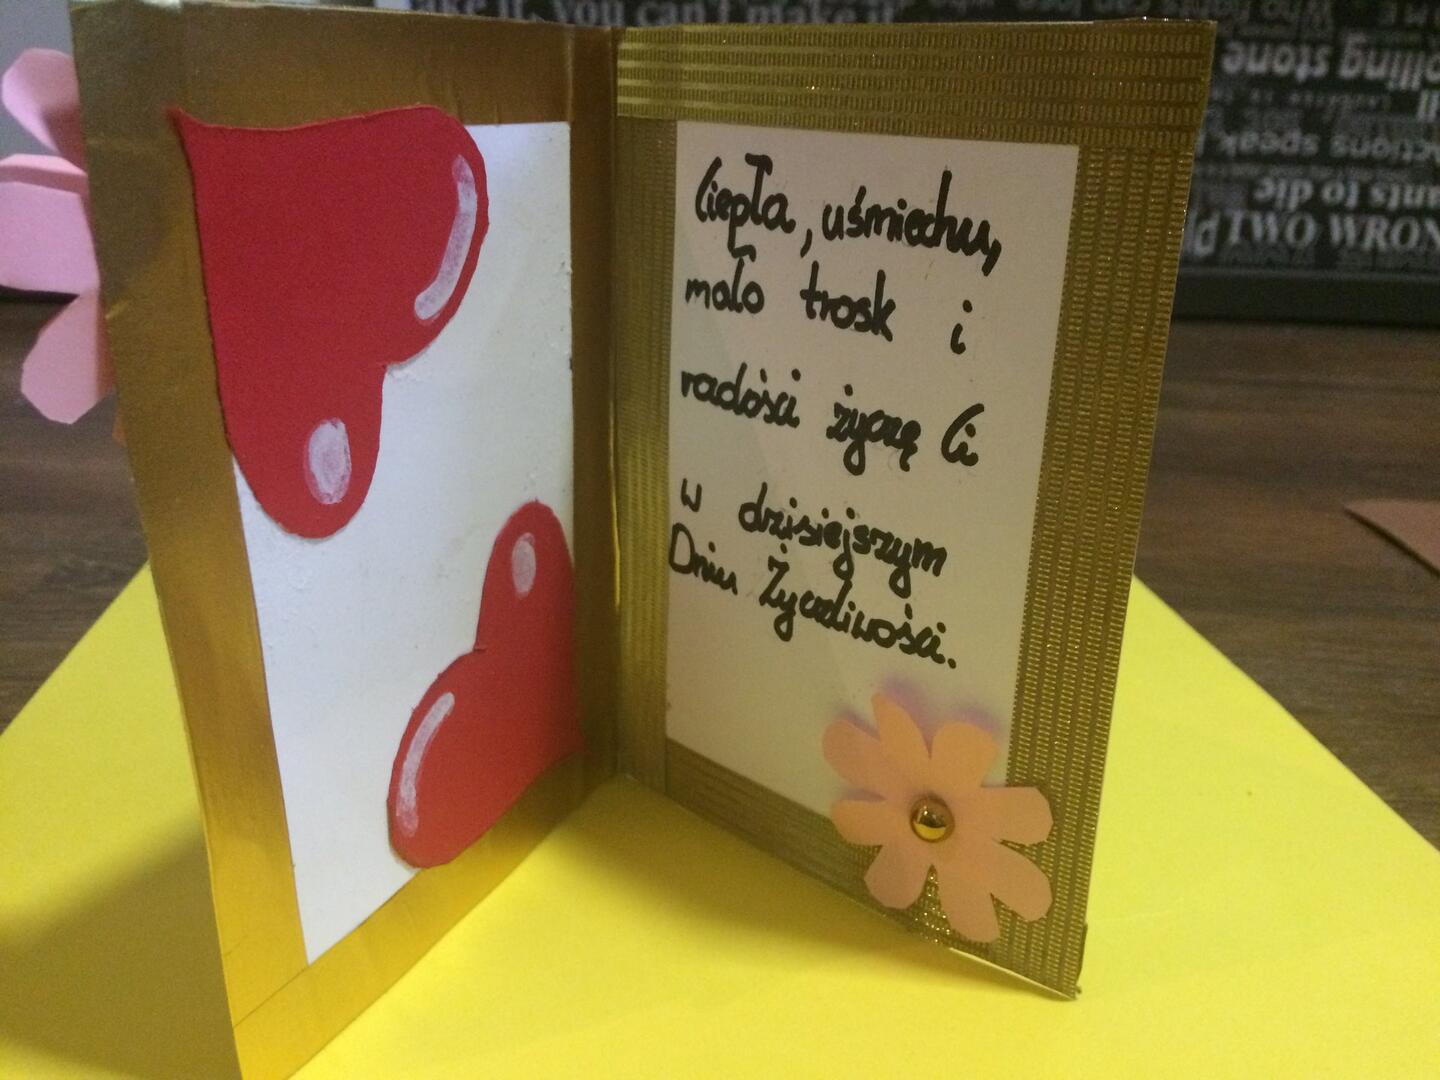 Ciepła, uśmiechu,
mało trosk i
radości życzę Ci
w dzisiejszym
Dniu Życzliwości.
you can't make it
olling stone
ctions speak
ants to die
TWO WRON